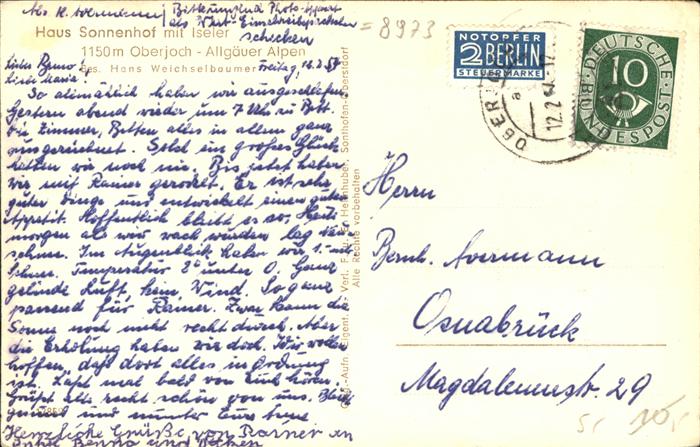 Abs. K. Avermann / Bitte umgehend Photo-Apparat
als Wert-Einschreibepäckchen
schicken
= 8973
Haus Sonnenhof mit Iseler
1150m Oberjoch - Allgäuer Alpen
Bes. Hans Weichselbaumer
Freitag, 12.2.
Liebe Maria!
So allmählich haben wir ausgeschlafen.
Gestern abend wieder um 7 Uhr zu Bett.
Die Zimmer, Betten alles in allem ganz
ausgezeichnet. Solch ein großes Glück
hatten wir noch nie. Bis jetzt haben
wir mit Rainer gerodelt. Er ist sehr
guter Dinge und entwickelt einen guten
Appetit. Hoffentlich bleibt es so. Heute
morgen als wir wach wurden lag
Im Augenblick haben wir
Schnee. Temperatur 2° unter 0. Ganz
gelinde Luft, kein Wind. So ganz
passend für Rainer. Zwar kann die
Sonne noch nicht recht durch. Aber
die Erholung haben wir doch. Wir wollen
hoffen, daß dort alles in Ordnung
ist. Laßt mal bald von Euch hören.
Grüßt alle recht schön von uns. Bleibt
gesund und munter Eure
Herzliche Grüße von Rainer an
Benno und
Alle Rechte vorbehalten
NOTOPFER
2 BERLIN
STEUERMARKE
OBERJOCH
a
12.2.
DEUTSCHE
BUNDESPOST
10
Herrn
Bernh. Avermann
Osnabrück
Magdalenenstr. 29